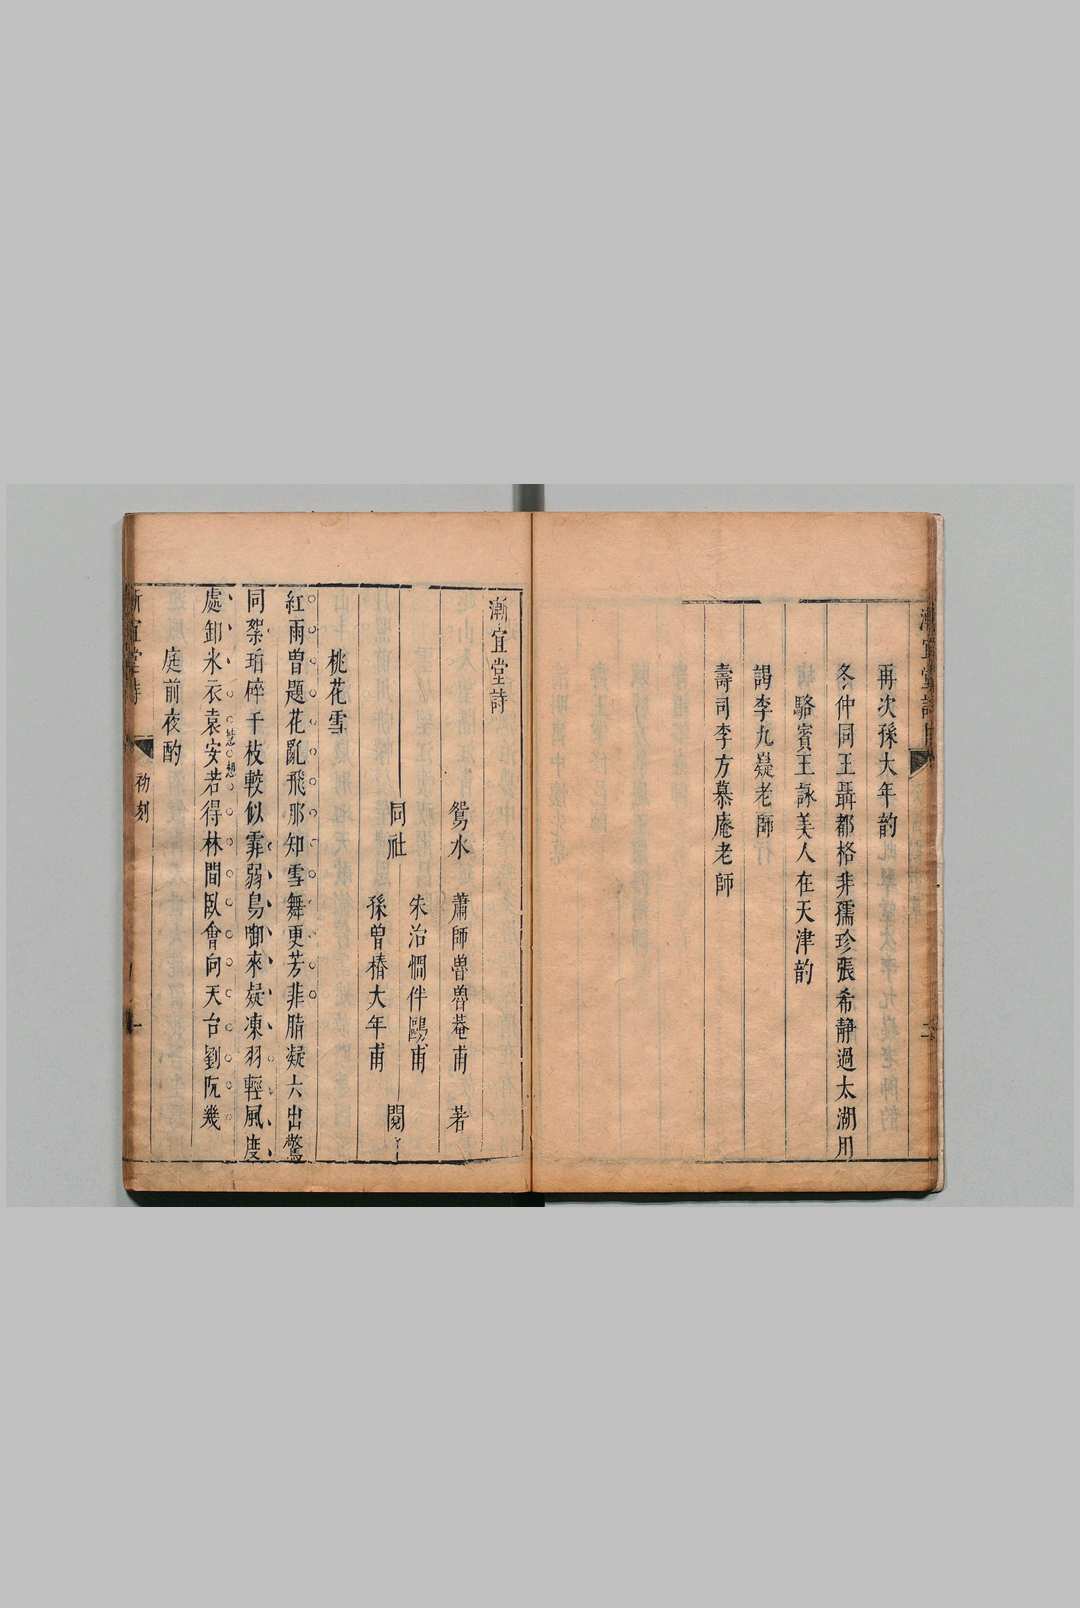 再次孫大年韵
冬仲同王聶都格非孺珍張希靜過太湖用
駱賓王詠美人在天津韵
謁李九嶷老師
壽司李方慕庵老師
漸宜堂詩
鴛水 蕭師魯魯菴甫 著
朱治憪伴鷗甫
同社 閱
孫曾椿大年甫
桃花雪
紅雨曾題花亂飛那知雪舞更芳菲脂凝六出驚
同槼珩碎千枝較似霏弱鳥啣來疑凍羽輕風度
處卸氷衣袁安若得林間臥會向天台劉阮幾
庭前夜酌
初刻
一